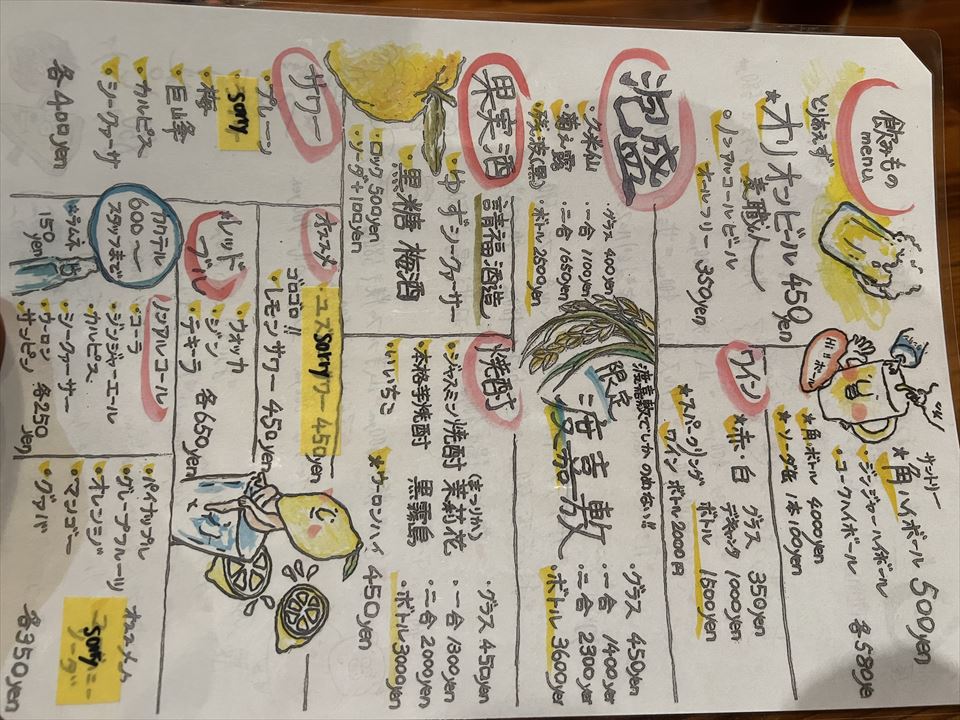 飲みもの
menu
とりあえず
★オリオンビール 450yen
麦職人
・ノンアルコールビール
オールフリー 350yen
Hiボール
サントリー
★角ハイボール 500yen
・ジンジャーハイボール
・コークハイボール 各580ye
★角ボトル 4000yen
★ソーダ缶 1本100yen
ワイン
★赤・白
グラス 350yen
デキャンタ 1000yen
ボトル 1500yen
★スパークリング
ワイン ボトル 2000円
泡盛
・久米仙
・菊之露
・残波(黒)
・グラス 400yen
・一合 1100yen
・二合 1650yen
・ボトル 2600yen
限定
・グラス 450yen
・一合 1400yen
・二合 2300yen
・ボトル 3600yen
果実酒
請福酒造
・ゆずシークヮーサー
・黒糖 梅酒
・ロック 500yen
・ソーダ +100yen
焼酎
・ジャスミン焼酎 茉莉花
(まつりか)
・本格芋焼酎 黒霧島
・いいちこ
・グラス 450yen
・一合 1300yen
・二合 2000yen
・ボトル 3000yen
★ウーロンハイ 450yen
サワー
・プレーン
sorry
・梅
・巨峰
・カルピス
・シークヮーサー
各400yen
オススメ
sorry
ワー 450yen
ゴロゴロ!!
・レモンサワー 450yen
レッド
ブル
・ウォッカ
・ジン
・テキーラ 各650yen
カクテル
600〜
スタッフまで
ノンアルコール
・コーラ
・ジンジャーエール
・カルピス
・シークヮーサー
・ウーロン 各250
・サンピン yen
★ラムネ
150
yen
・パイナップル
・グレープフルーツ
・オレンジ
・マンゴー
・グァバ
オススメ
sorry
ソーダ
各350yen